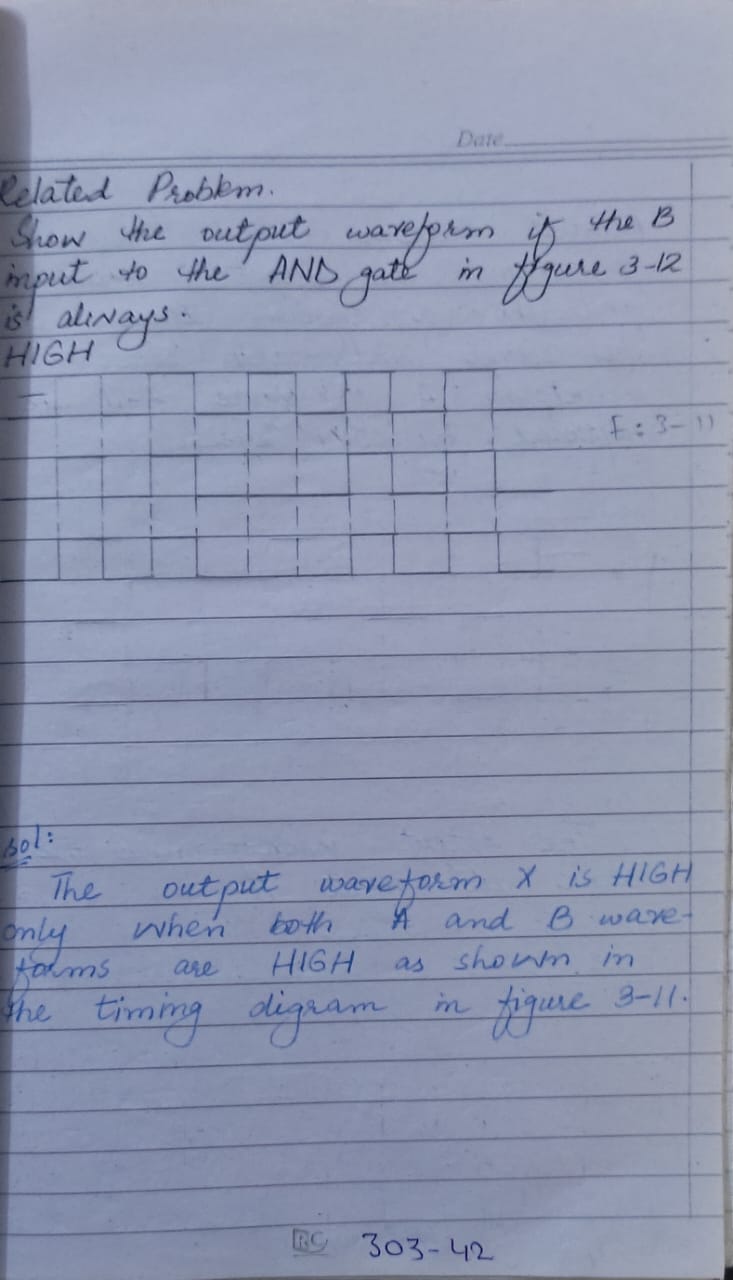 Date
Related Problem.
Show the output waveform if the B
input to the AND gate in figure 3-12
is always.
HIGH
F: 3-11
Sol:
The output waveform X is HIGH
only when both A and B wave-
forms are HIGH as shown in
the timing digram in figure 3-11.
RC 303-42